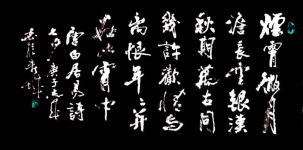 煙霄微月
澹長空銀漢
秋期萬古同
幾許歡情與
離恨年々并
在此宵中
唐白居易詩
七夕